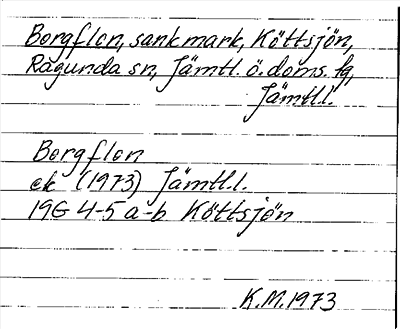 Borgflon, sank mark, Köttsjön,
Ragunda sn, Jämtl. ö. doms. fg,
Jämtl.l.
Borgflon
ek (1973) Jämtl.l.
19G 4-5 a-b Köttsjön
K.M. 1973